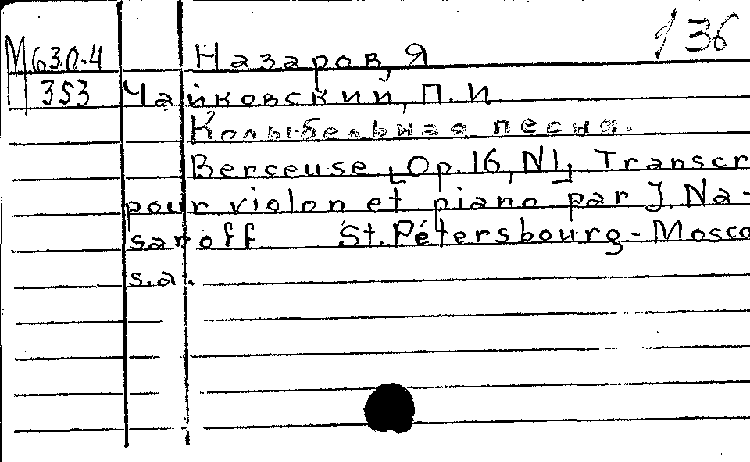 М630-4 Назаров, Я 136
353 Чайковский, П. И
Колыбельная песня.
Berceuse, Op. 16, N1, Transcr
pour violon et piano par J. Na-
saroff St. Pétersbourg - Mosco
s.a.